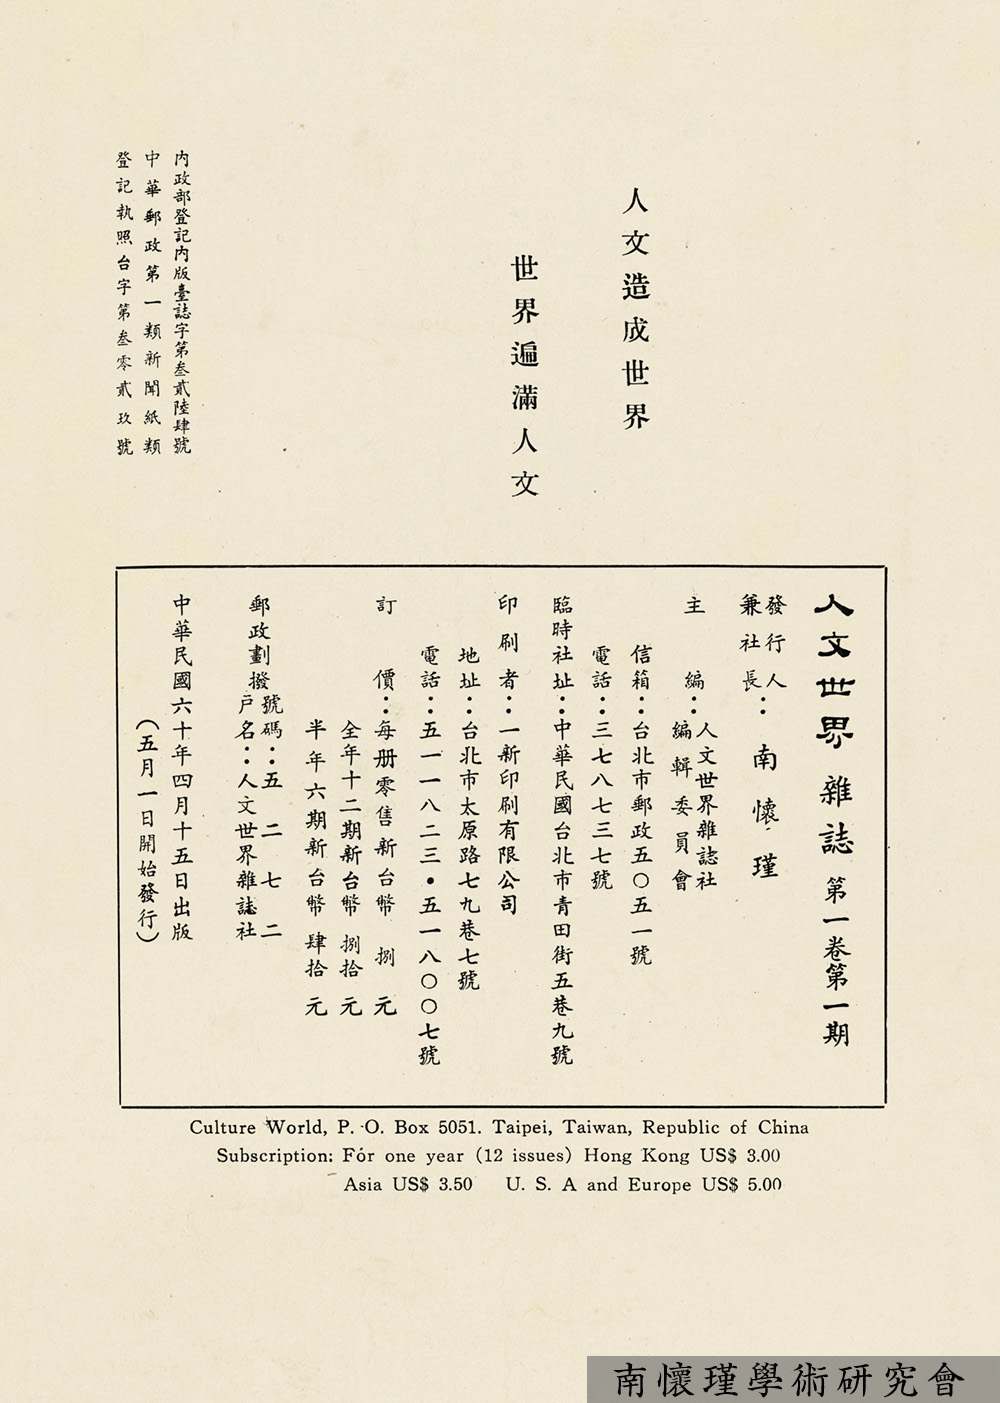 人文造成世界
世界遍滿人文
內政部登記內版臺誌字第叁貳陸肆號
中華郵政第一類新聞紙類
登記執照台字第叁零貳玖號
人文世界 雜誌 第一卷第一期
發行人
兼社長：南懷瑾
主編：人文世界雜誌社
編輯委員會
信箱：台北市郵政五〇五一號
電話：三七八七三七號
臨時社址：中華民國台北市青田街五巷九號
印刷者：一新印刷有限公司
地址：台北市太原路七九巷七號
電話：五一一八二三・五一八〇〇七號
訂價：每册零售新台幣 捌 元
全年十二期新台幣 捌拾 元
半年六期新台幣 肆拾 元
郵政劃撥號碼：五二七二
戶名：人文世界雜誌社
中華民國六十年四月十五日出版
（五月一日開始發行）
Culture World, P. O. Box 5051. Taipei, Taiwan, Republic of China
Subscription: For one year (12 issues) Hong Kong US$ 3.00
Asia US$ 3.50 U. S. A and Europe US$ 5.00
南懷瑾學術研究會